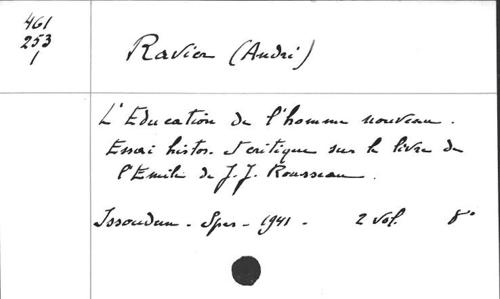 461
253
1
Ravier (André)
L'Education de l'homme nouveau.
Essai histor. et critique sur le livre de
l'Emile de J. J. Rousseau.
Issoudun - Spes - 1941 - 2 vol. 8°